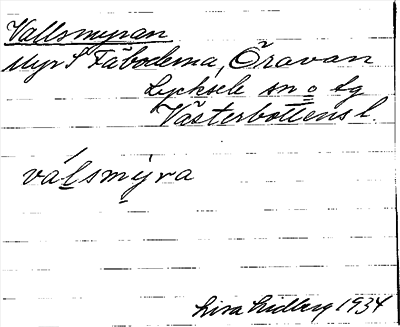 Vallsmyran
Myr S Fäboderna, Öravan
Lycksele sn o lg
Västerbottens l.
válsmýra
Lisa Lidberg 1934